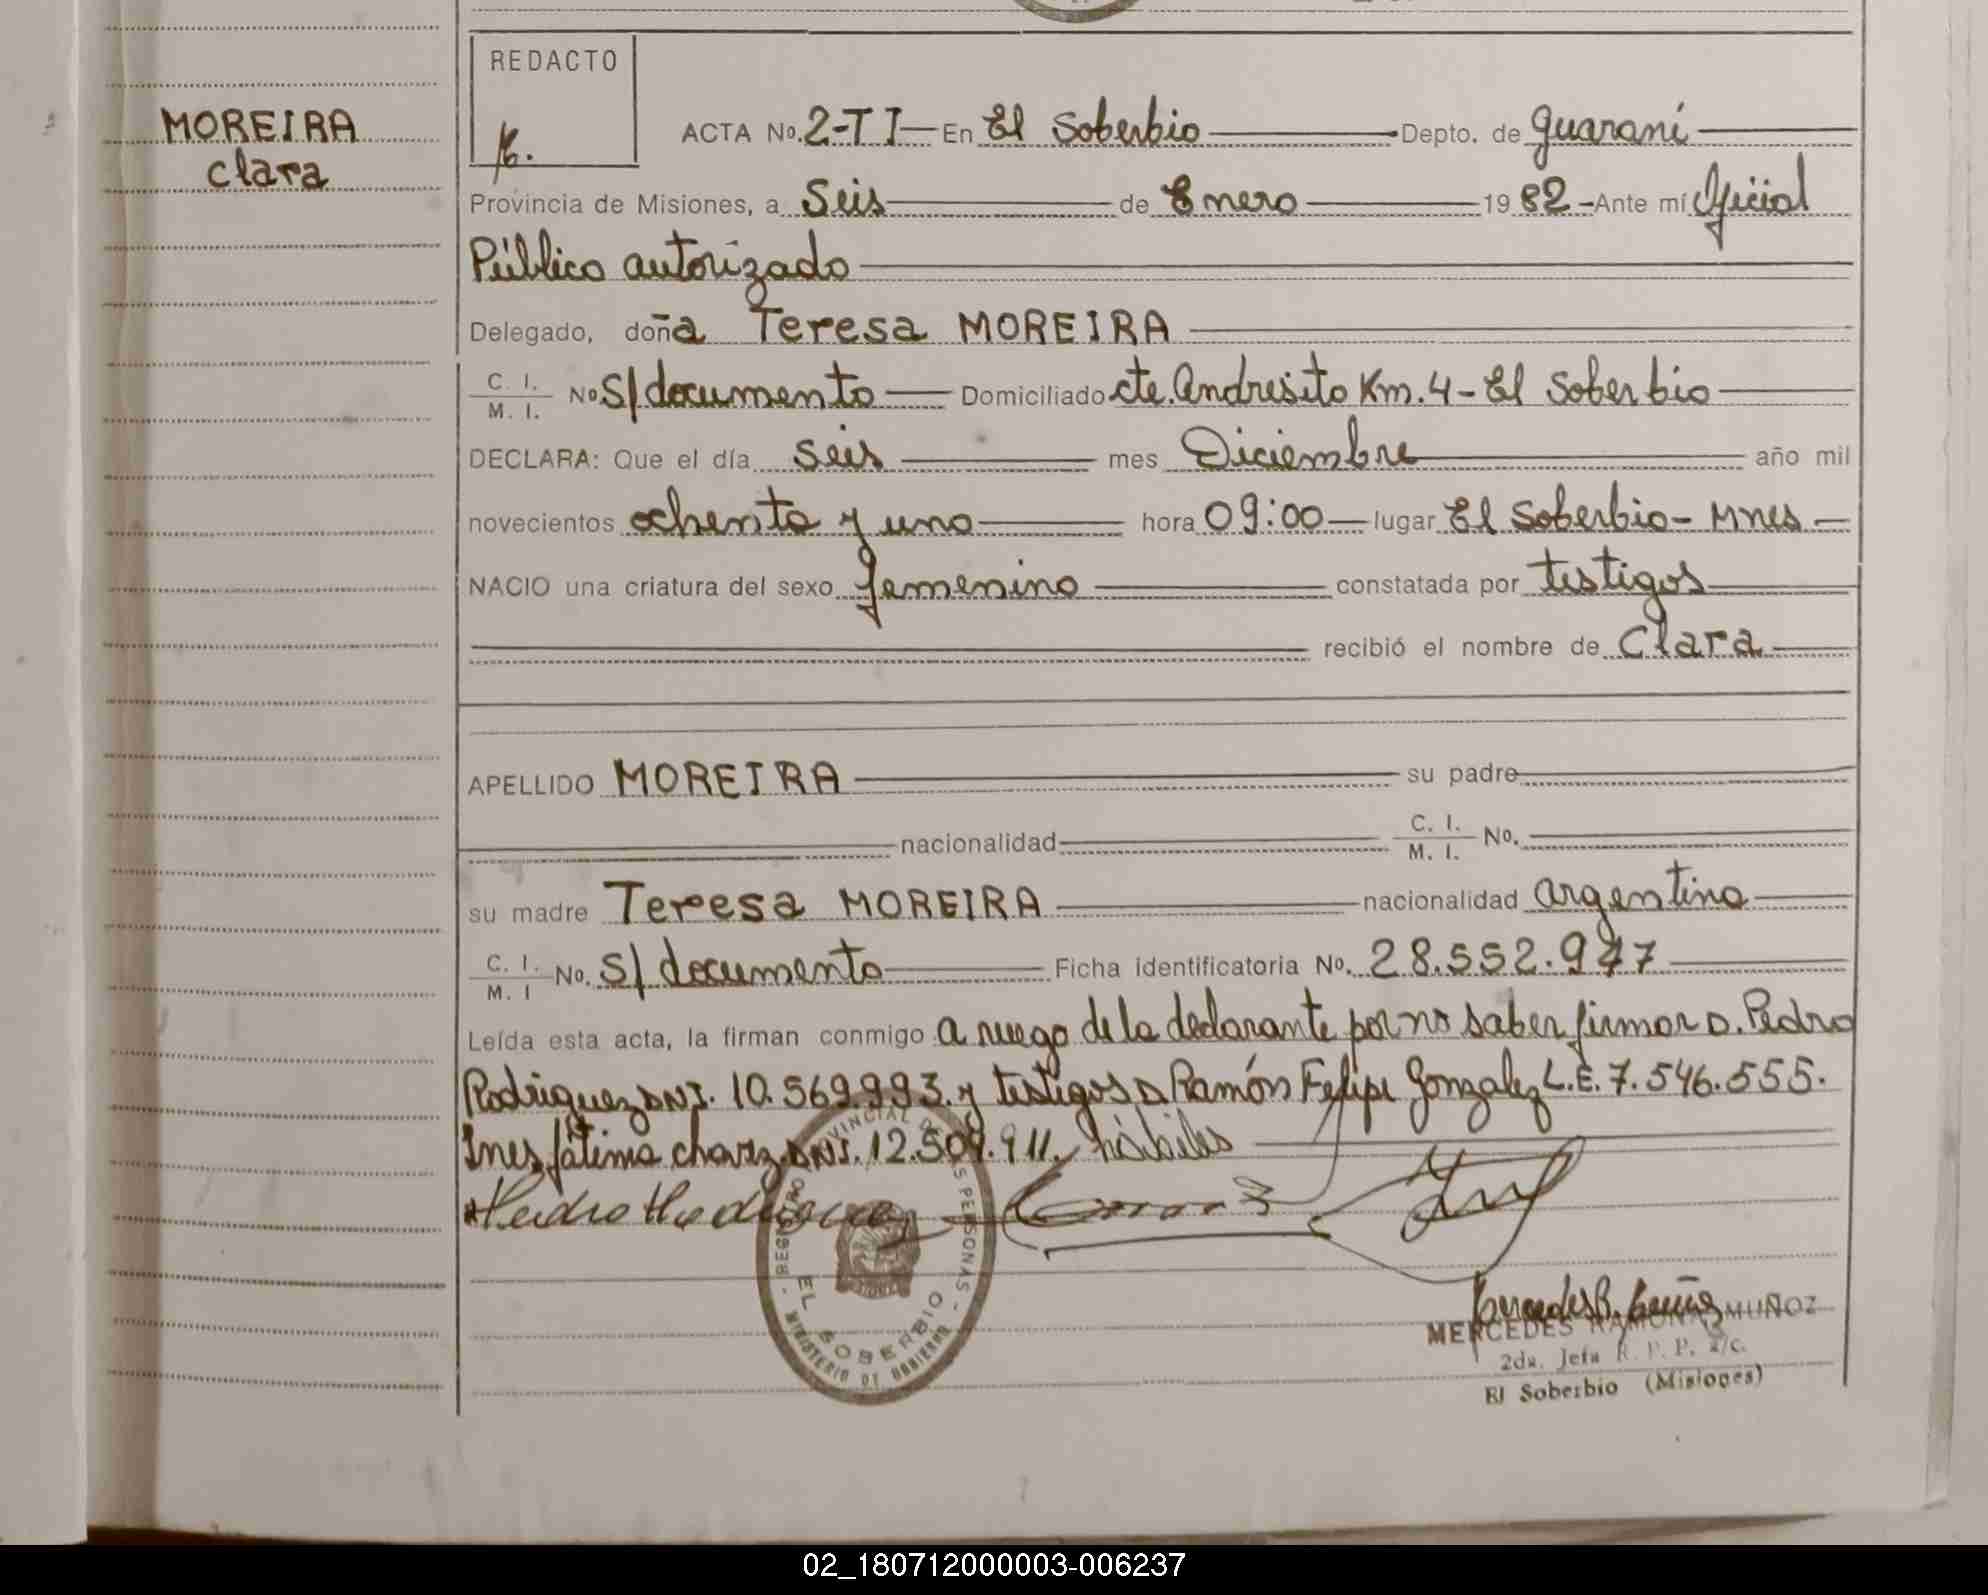 REDACTO
MOREIRA
Clara
ACTA No. 2-TI En El Soberbio Depto. de Guaraní
Provincia de Misiones, a Seis de Enero 1982 Ante mí Oficial
Público autorizado
Delegado, doña Teresa MOREIRA
C. I.
M. I. No S/documento Domiciliado cte. Andresito Km. 4 - El Soberbio
DECLARA: Que el día seis mes Diciembre año mil
novecientos ochenta y uno hora 09:00 lugar El Soberbio - Mnes
NACIO una criatura del sexo femenino constatada por testigos
recibió el nombre de Clara
APELLIDO MOREIRA su padre
nacionalidad C. I.
M. I. No.
su madre Teresa MOREIRA nacionalidad argentina
C. I.
M. I No. S/documento Ficha identificatoria No. 28.552.947
Leída esta acta, la firman conmigo a ruego de la declarante por no saber firmar D. Pedro
Rodriguez DNI. 10.569.993. y testigos D. Ramón Felipe Gonzalez L.E. 7.546.555.
Ines fátima chavez DNI. 12.509.911. hábiles
REGISTRO PROVINCIAL DE LAS PERSONAS
EL SOBERBIO
MINISTERIO DE GOBIERNO
Mercedes R. Muñoz
MERCEDES RAMONA MUÑOZ
2da. Jefa R. P. P. a/c.
El Soberbio (Misiones)
02_180712000003-006237